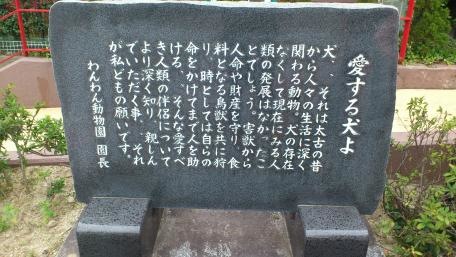 愛する犬よ
犬、それは太古の昔
から人々の生活に深く
関わる動物、犬の存在
なくして現在にみる人
類の発展はなかったこ
とでしょう。害獣から
人命や財産を守り、食
料となる鳥獣を共に狩
り、時としては自らの
命をかけてまで人を助
ける、そんな愛すべ
き人類の伴侶について
より深く知り、親しん
でいただく事、それ
が私どもの願いです。
わんわん動物園 園長